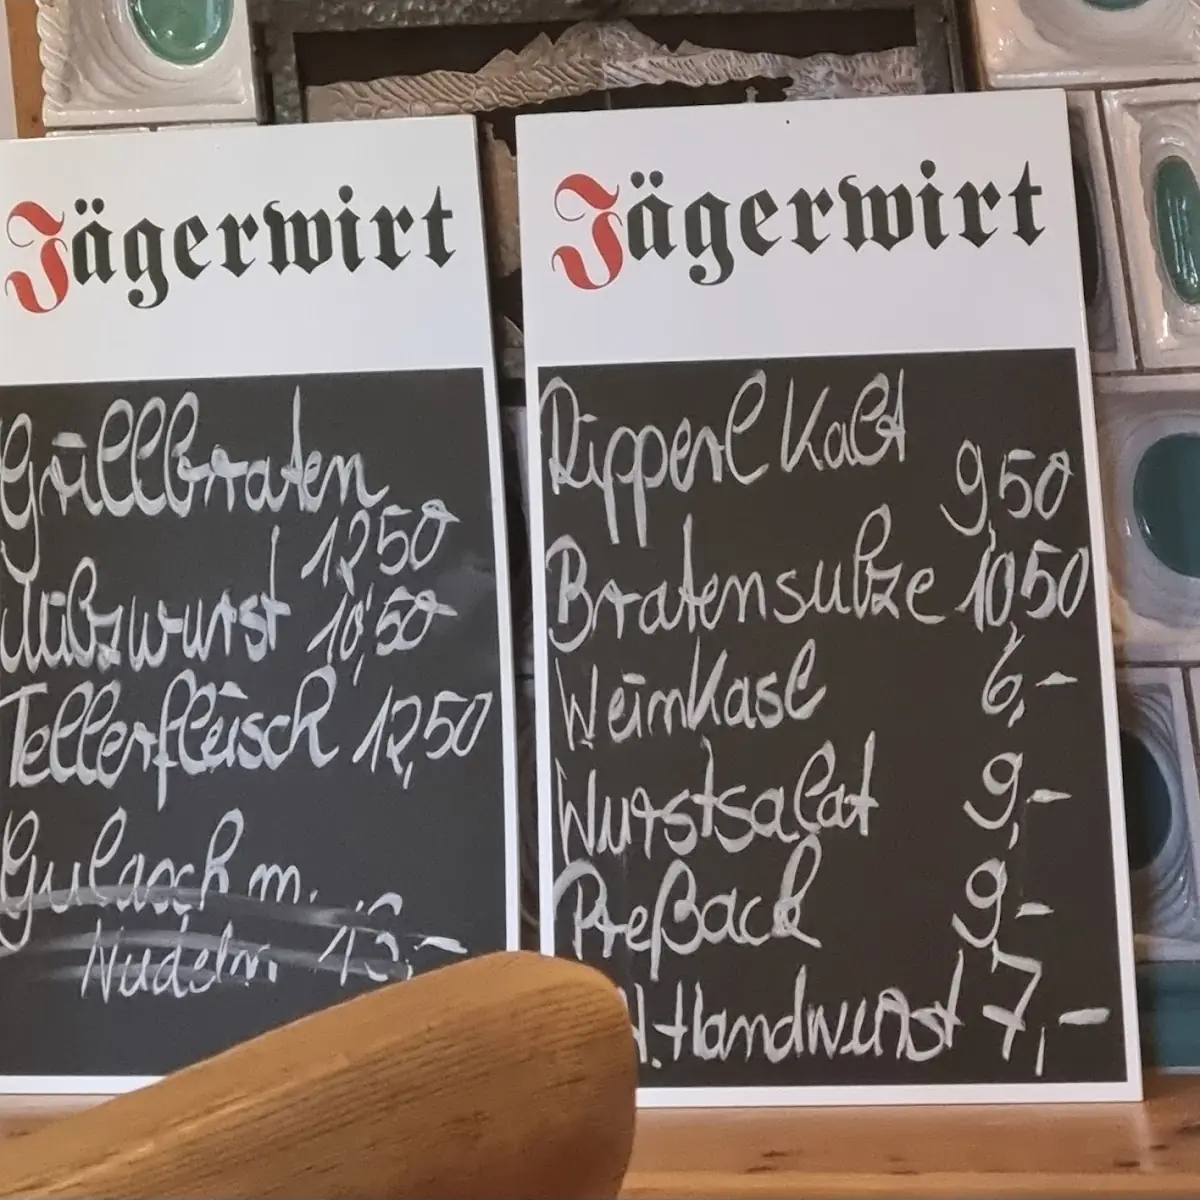 Jägerwirt
Grillbraten
12,50
Milzwurst 10,50
Tellerfleisch 12,50
Gulasch m.
Nudeln 13,-
Jägerwirt
Ripperl Kalt
9,50
Bratensulze 10,50
Weinkase 6,-
Wurstsalat 9,-
Preßack 9,-
H.Handwurst 7,-